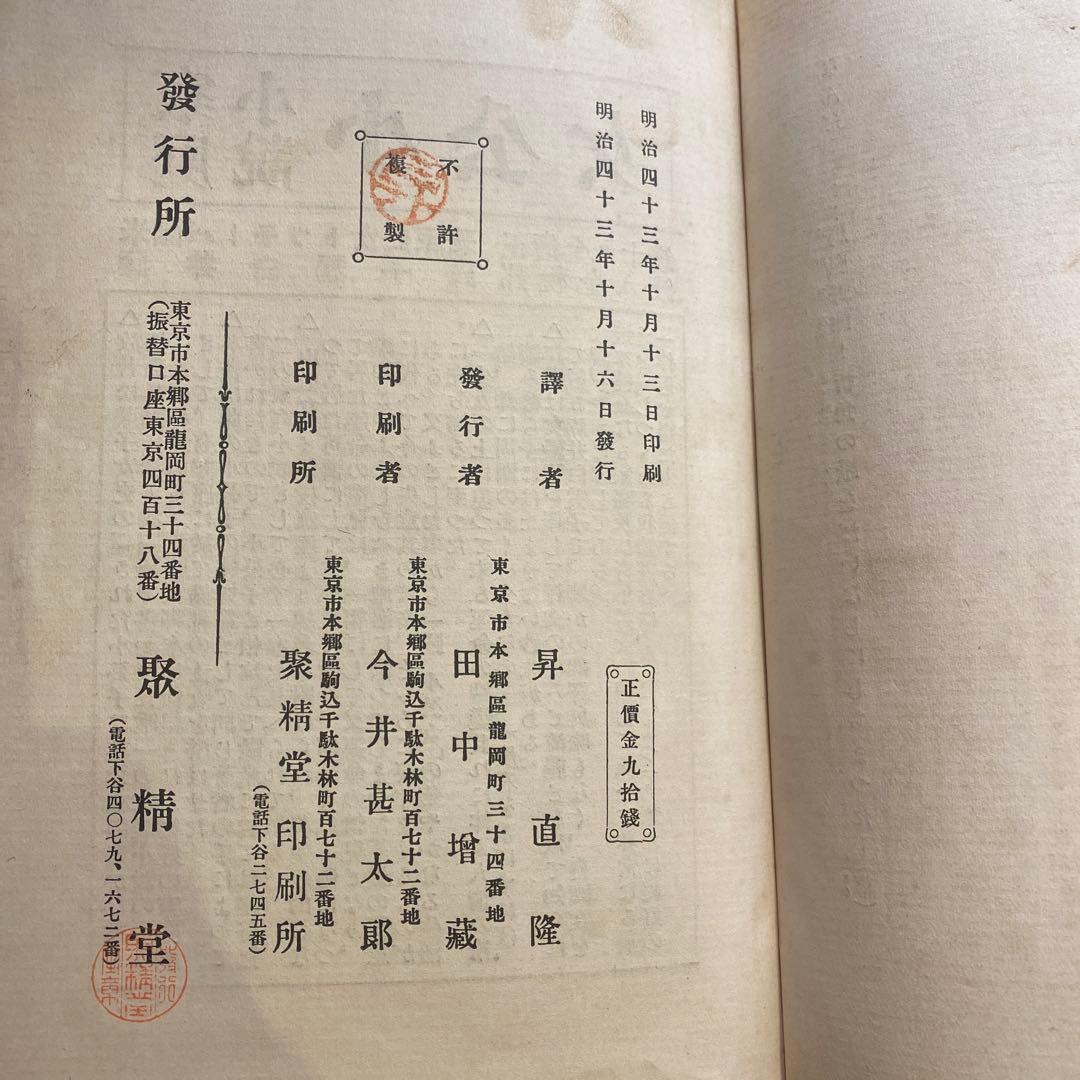 明治四十三年十月十三日印刷
明治四十三年十月十六日發行
正價金九拾錢
不許
複製
譯者
昇直隆
東京市本鄕區龍岡町三十四番地
發行者
田中增藏
東京市本鄕區駒込千駄木林町百七十二番地
印刷者
今井甚太郞
東京市本鄕區駒込千駄木林町百七十二番地
印刷所
聚精堂印刷所
(電話下谷二七四五番)
發行所
東京市本鄕區龍岡町三十四番地
(振替口座東京四百十八番)
聚精堂
(電話下谷四〇七九、一六七二番)